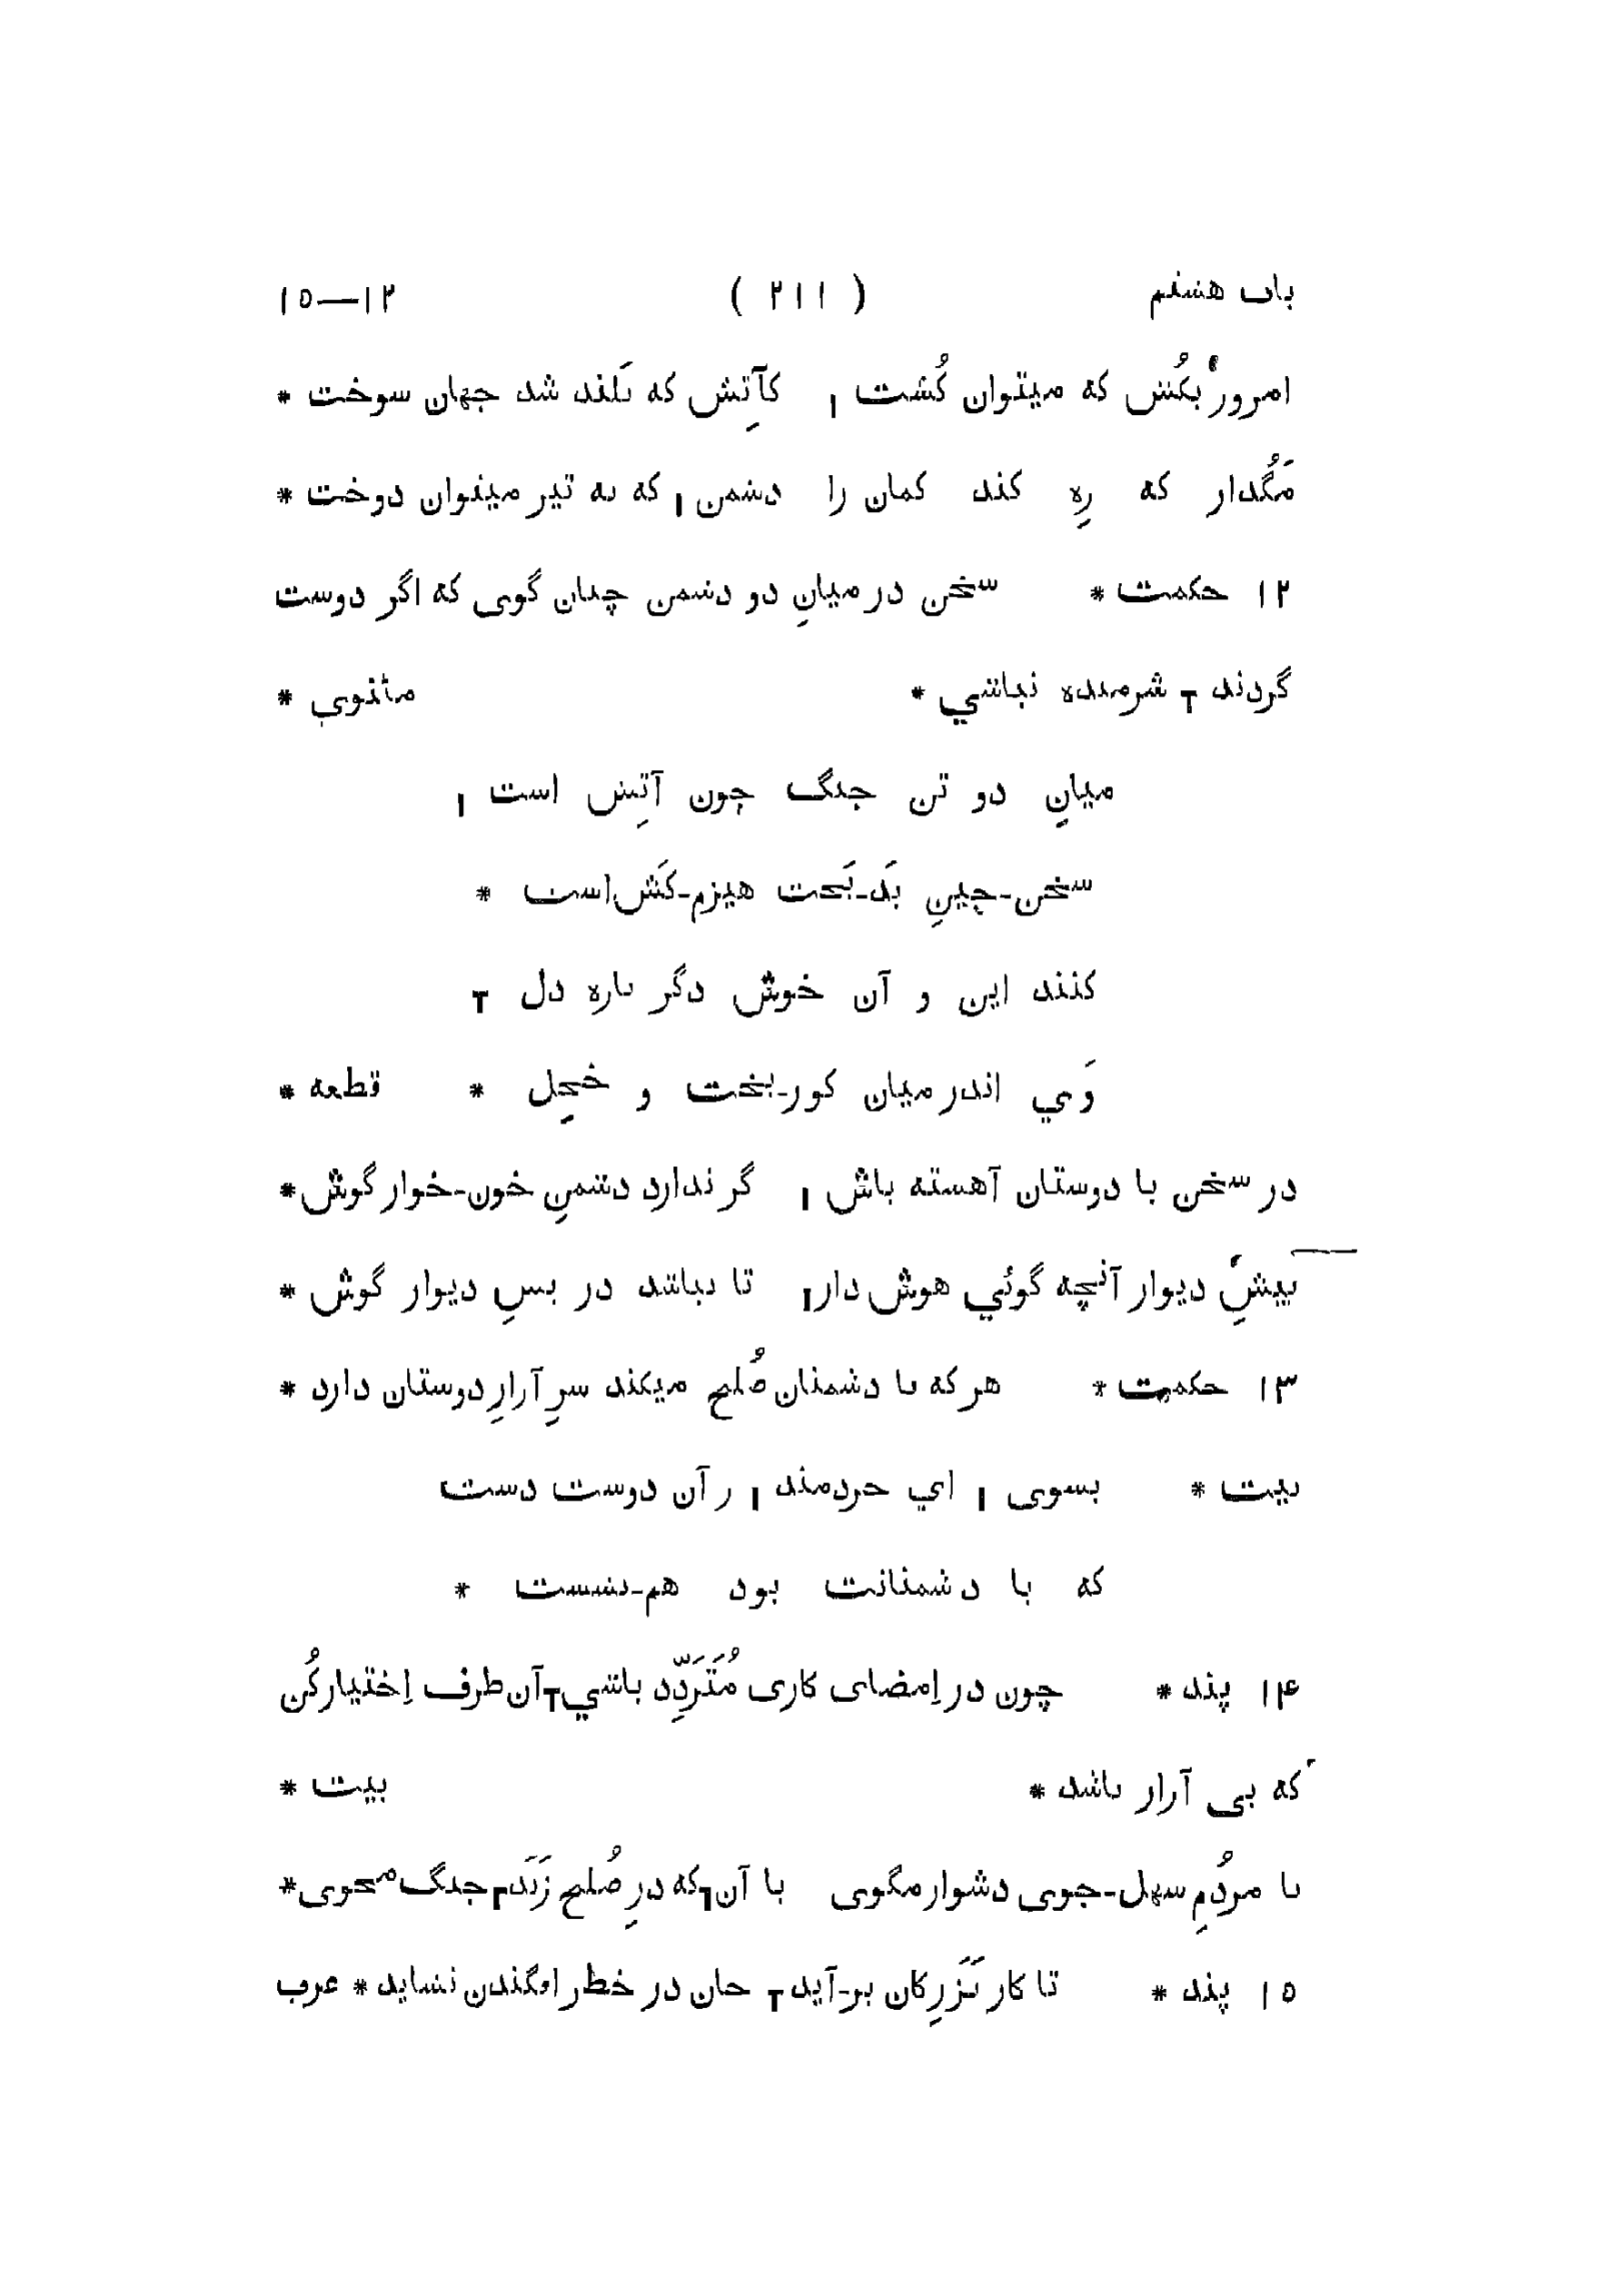 باب هشتم ( ۲۱۱ ) ۱۲—۱۵
امروز بکُش که میتوان کُشت ا کآتِش که بَلند شد جهان سوخت *
مَگُذار که زِه کند کمان را دشمن ا که به تیر میتوان دوخت *
۱۲ حکمت * سخن در میانِ دو دشمن چنان گوی که اگر دوست
گردند T شرمنده نباشي * مثنوي *
میانِ دو تن جنگ چون آتِش است ا
سخن-چینِ بَد-بَخت هیزم-کَش است *
کنند این و آن خوش دگر باره دل T
وَي اندر میان کور-بخت و خجِل * قطعه *
در سخن با دوستان آهسته باش ا گر ندارد دشمنِ خون-خوار گوش *
پیشِ دیوار آنچه گوئي هوش دار ا تا نباشد در پسِ دیوار گوش *
۱۳ حکمت * هر که با دشمنان صُلح میکند سرِ آزارِ دوستان دارد *
بیت * بسوی ا اي خردمند ا ز آن دوست دست
که با دشمنانت بود هم-نشست *
۱۴ پند * چون در اِمضای کاری مُتَرَدِّد باشي T آن طرف اِختیار کُن
که بی آزار باشد * بیت *
با مردُمِ سهل-جوی دشوار مگوی با آن T که درِ صُلح زَنَد T جنگ مجوی *
۱۵ پند * تا کار بَزَرِ کان بر-آید T جان در خطر افگندن نشاید * عرب